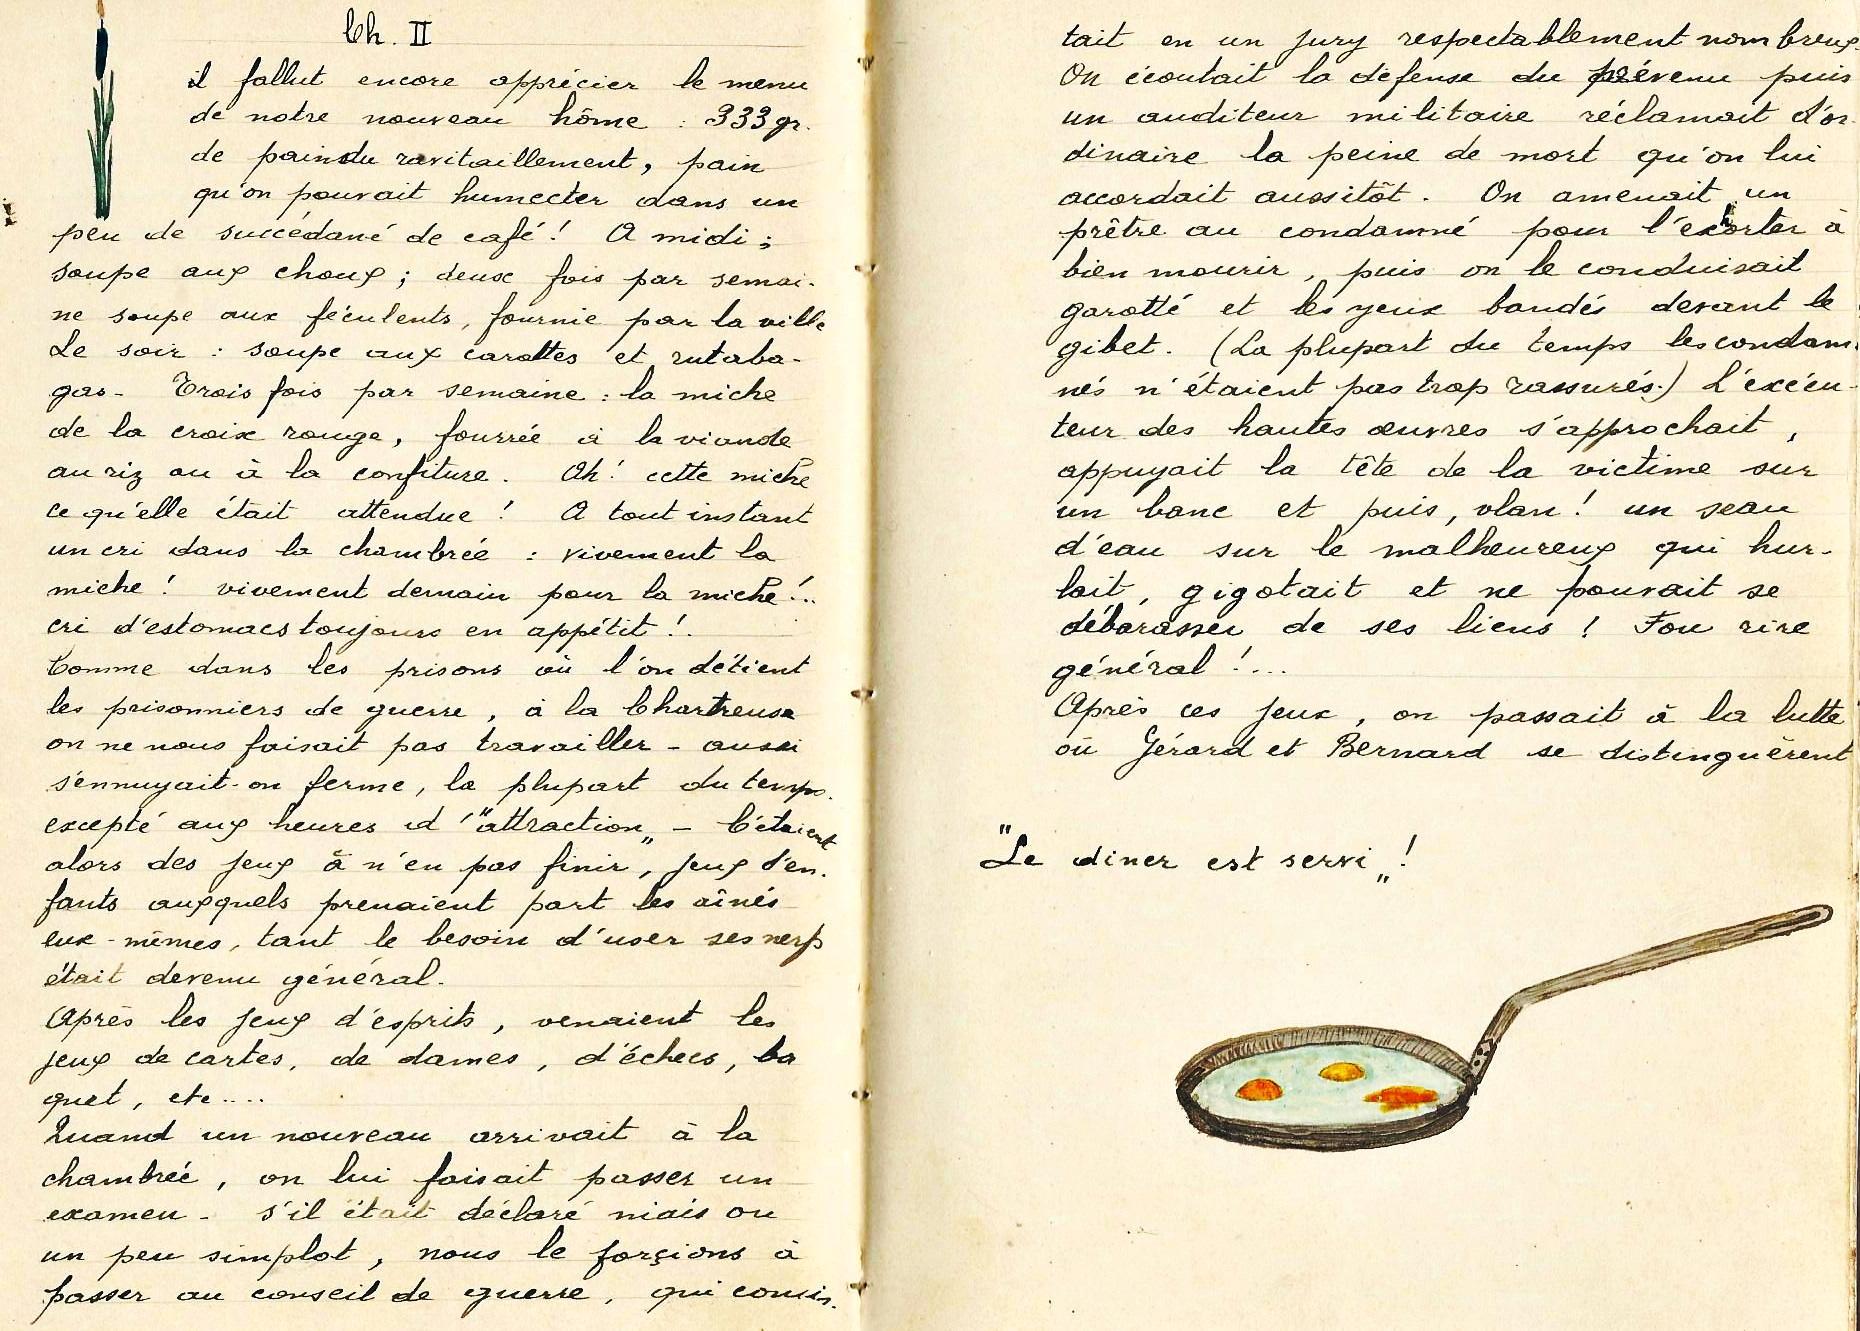 Ch. II
il fallut encore apprécier le menu
de notre nouveau hôme : 333 gr.
de pain du ravitaillement, pain
qu'on pouvait humecter dans un
peu de succédané de café ! A midi ;
soupe aux choux ; deux fois par semai-
ne soupe aux féculents, fournie par la ville
Le soir : soupe aux carottes et rutaba-
gas - Trois fois par semaine : la miche
de la croix rouge, fourrée à la viande
au riz ou à la confiture. Ah ! cette miche
ce qu'elle était attendue ! A tout instant
un cri dans la chambrée : vivement la
miche ! vivement demain pour la miche !..
cri d'estomacs toujours en appétit !.
Comme dans les prisons où l'on détient
les prisonniers de guerre, à la Chartreuse
on ne nous faisait pas travailler - aussi
s'ennuyait-on ferme, la plupart du temps.
excepté aux heures d'"attraction„ - C'étaient
alors des jeux à n'en pas finir, jeux d'en-
fants auxquels prenaient part les aînés
eux-mêmes, tant le besoin d'user ses nerfs
était devenu général.
Après les jeux d'esprits, venaient les
jeux de cartes, de dames, d'échecs, ba
quet, etc....
Quand un nouveau arrivait à la
chambrée, on lui faisait passer un
examen - s'il était déclaré niais ou
un peu simplot, nous le forçions à
passer au conseil de guerre, qui consis-
tait en un jury respectablement nombreux.
On écoutait la défense du prévenu puis
un auditeur militaire réclamait d'or-
dinaire la peine de mort qu'on lui
accordait aussitôt. On amenait un
prêtre au condamné pour l'exhorter à
bien mourir, puis on le conduisait
garotté et les yeux bandés devant le
gibet. (La plupart du temps les condam-
nés n'étaient pas trop rassurés.) L'exécu-
teur des hautes œuvres s'approchait,
appuyait la tête de la victime sur
un banc et puis, vlan ! un seau
d'eau sur le malheureux qui hur-
lait, gigotait et ne pouvait se
débarasser de ses liens ! Fou rire
général !...
Après ces jeux, on passait à la lutte
où Gérard et Bernard se distinguèrent
"Le diner est servi„ !